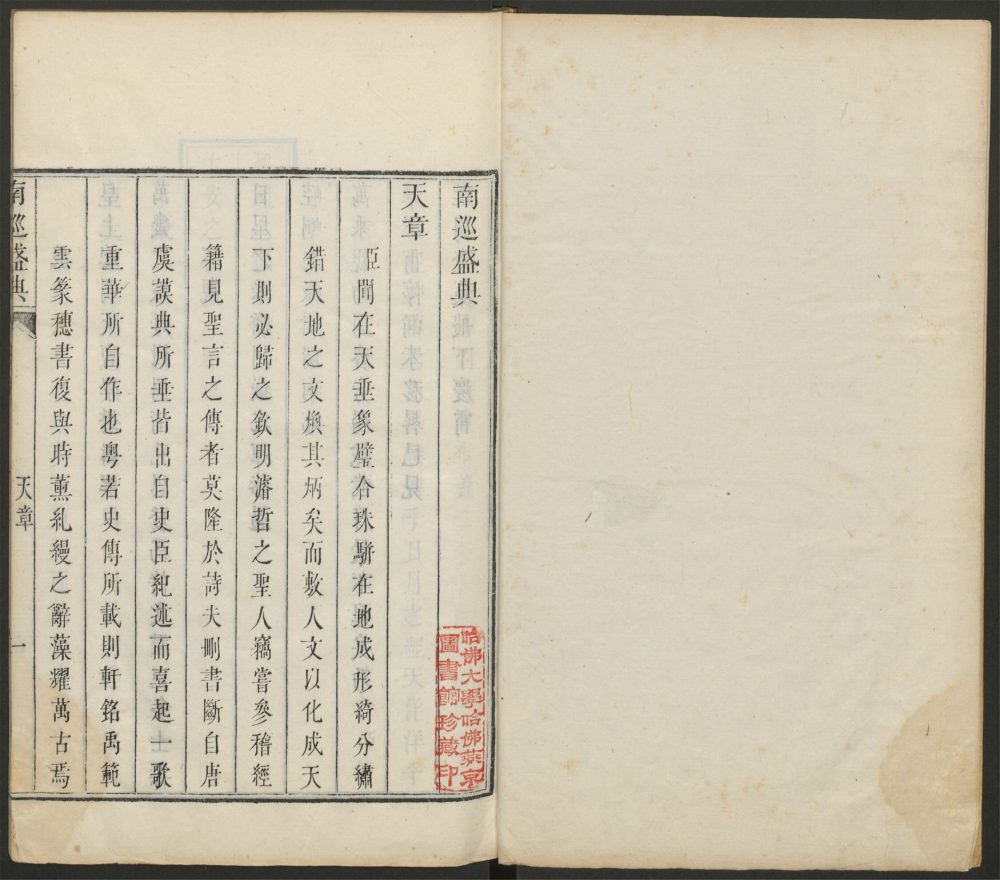 南巡盛典
天章
臣聞在天垂象璧合珠駢在地成形綺分繡
錯天地之文煥其炳矣而敷人文以化成天
下則必歸之欽明濬哲之聖人竊嘗參稽經
籍見聖言之傳者莫隆於詩夫刪書斷自唐
虞謨典所垂皆出自史臣紀述而喜起一歌
重華所自作也粵若史傳所載則軒銘禹範
雲篆穗書復與時薰糺縵之辭藻耀萬古焉
南巡盛典
天章
一
哈佛大學哈佛燕京
圖書館珍藏印